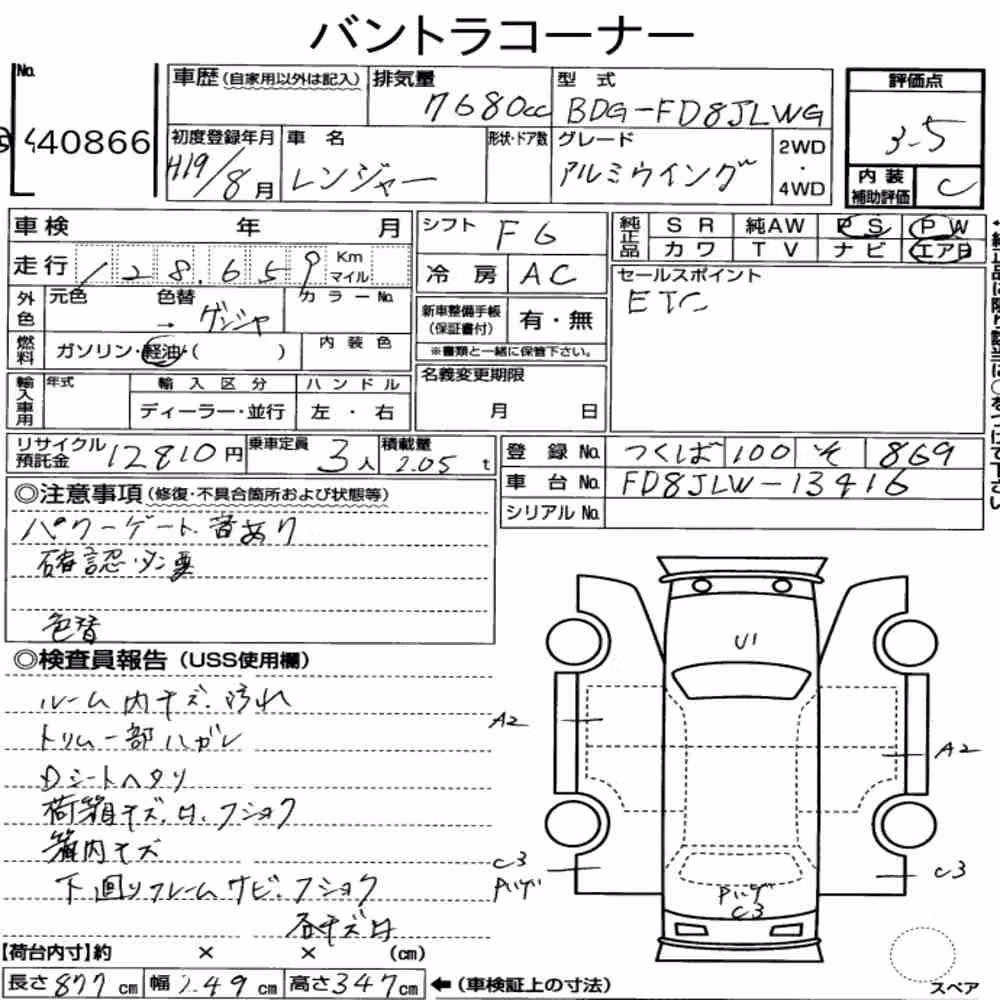 バントラコーナー
No. 40866
車歴 (自家用以外は記入) 排気量 7680cc 型式 BDG-FD8JLWG 評価点 3.5
初度登録年月 H19/8月 車名 レンジャー 形状・ドア数 グレード アルミウイング 2WD・4WD 内装補助評価 C
車検 年 月 シフト F6 純正品 SR 純AW PS PW
カワ TV ナビ エアB
走行 128,659 Km マイル 冷房 AC セールスポイント
ETC
外色 元色 色替 → ゲンジャ カラーNo. 新車整備手帳(保証書付) 有・無
※書類と一緒に保管下さい。
燃料 ガソリン・軽油・( ) 内装色
輸入車用 年式 輸入区分 ハンドル 名義変更期限
ディーラー・並行 左・右 月 日
リサイクル預託金 12810円 乗車定員 3人 積載量 2.05t 登録No. つくば 100 そ 869
車台No. FD8JLW-13416
シリアルNo.
◎注意事項 (修復・不具合箇所および状態等)
パワーゲート音あり
確認必要
色替
◎検査員報告 (USS使用欄)
ルーム内キズ、汚れ
トリム一部ハガレ
Dシートヘタリ
荷箱キズ、凹、フショク
箱内キズ
下回リフレームサビ、フショク
各キズ凹
U1
A2
A2
C3
C3
C3
【荷台内寸】約 × × (cm)
長さ 877cm 幅 249cm 高さ 347cm ←(車検証上の寸法)
スペア